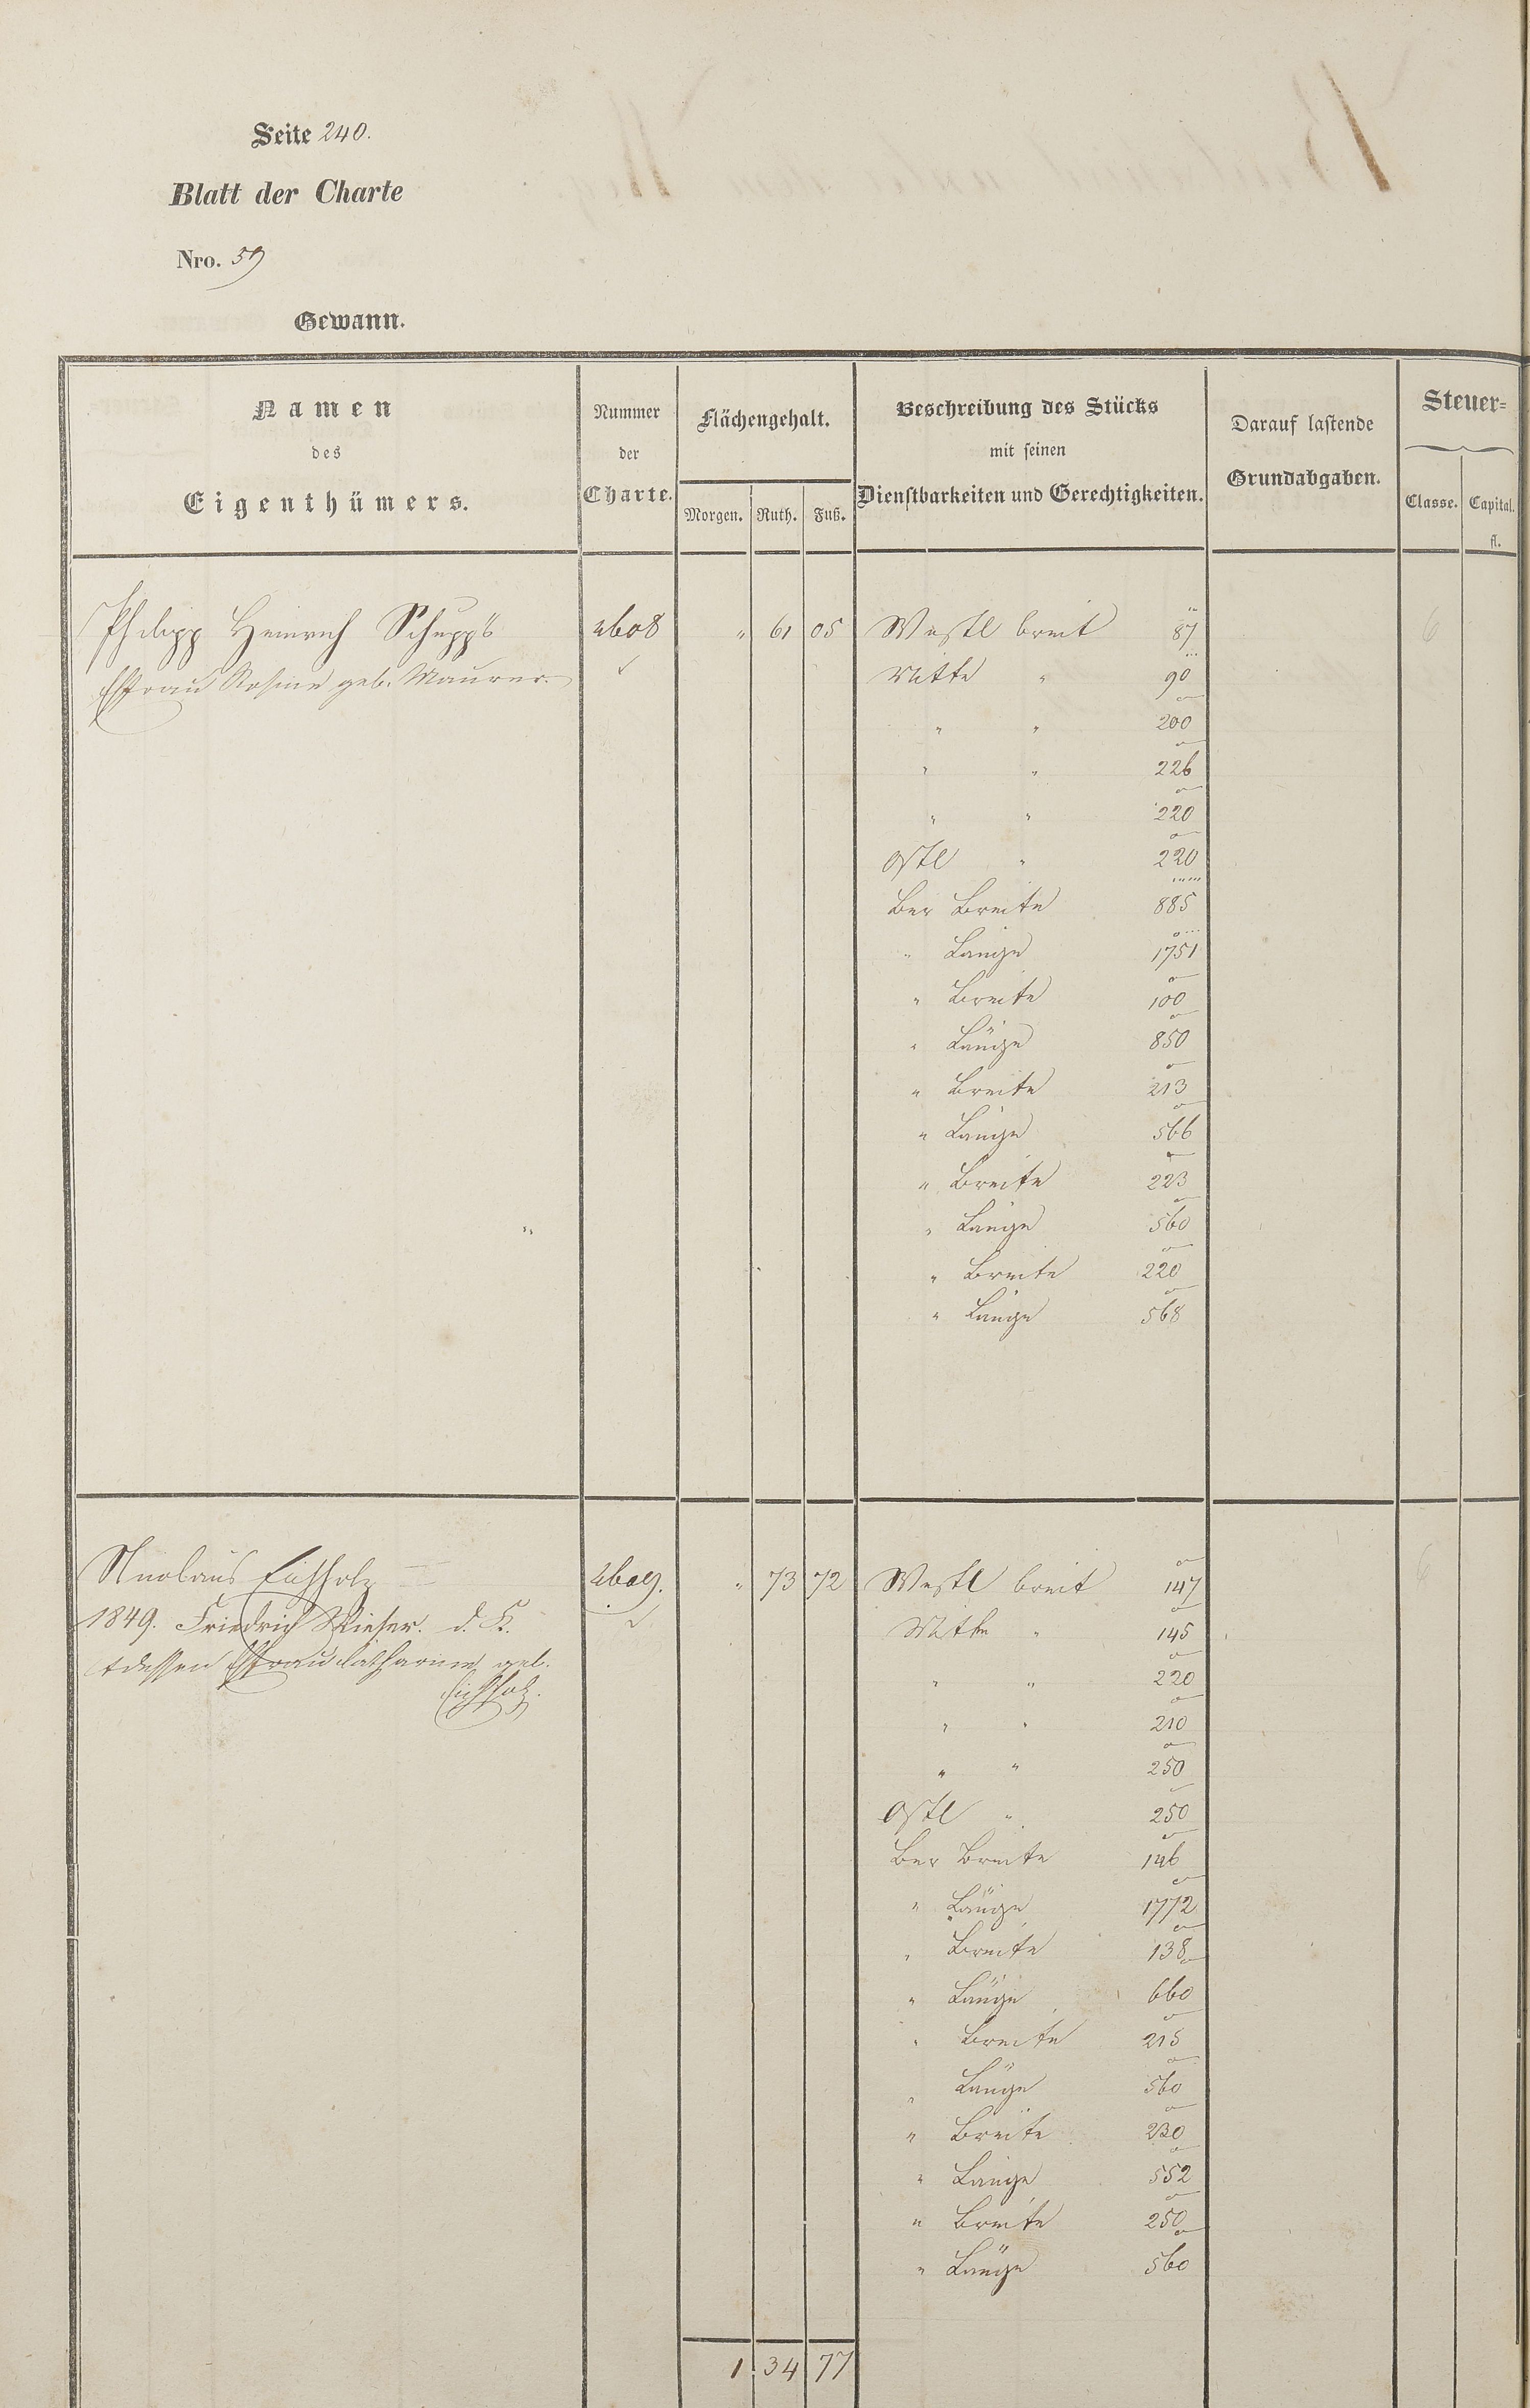 Seite 240.
Blatt der Charte
Nro. 59
Gewann.
Namen
des
Eigenthümers.
Nummer
der
Charte.
Flächengehalt.
Morgen. Ruth. Fuß.
Beschreibung des Stücks
mit seinen
Dienstbarkeiten und Gerechtigkeiten.
Darauf lastende
Grundabgaben.
Steuer=
Classe. Capital.
fl.
Philipp Heinrich Schupp's 2608 " 61 05 Westl breit 87 6
Ehfrau Rosine geb. Maurer. Mitte " 90
" " 200
" " 226
" " 220
Ostl " 220
Ber Breite 885
" Länge 1751
" Breite 100
" Länge 850
" Breite 213
" Länge 566
" Breite 223
" Länge 560
" Breite 220
" Länge 568
Nicolaus Eichholz 2609. " 73 72 Westl breit 147 6
1849. Friedrich Wieser. d. K. Mitte " 145
dessen Ehfrau Catharina geb. " " 220
Eichholz.
" " 210
" " 250
Ostl " 250
Ber Breite 146
" Länge 1772
" Breite 138
" Länge 660
" Breite 215
" Länge 560
" Breite 230
" Länge 552
" Breite 250
" Länge 560
1 34 77